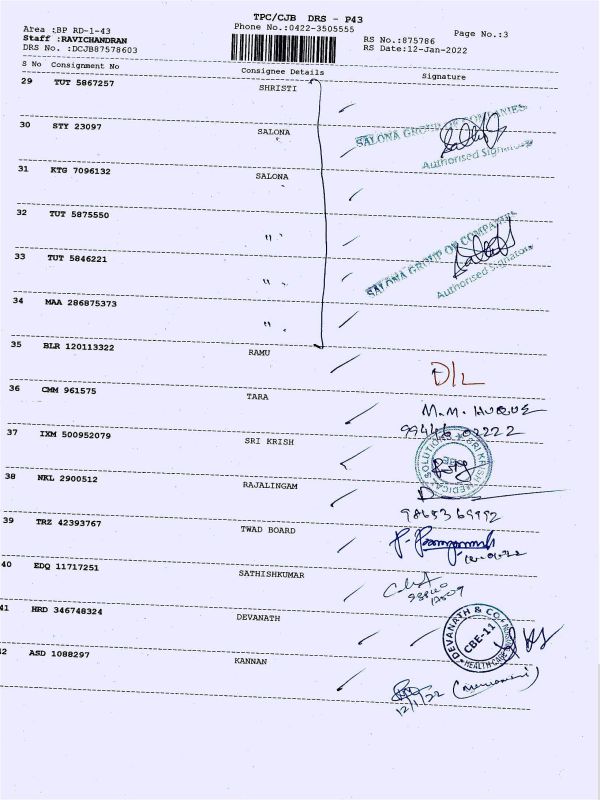 TPC/CJB DRS - P43
Area :BP RD-1-43 Phone No:0422-3505555
Staff :RAVICHANDRAN RS No.:875786 Page No.:3
DRS No. :DCJB87578603 RS Date:12-Jan-2022
S No Consignment No Consignee Details Signature
29 TUT 5867257 SHRISTI
30 STY 23097 SALONA
SALONA GROUP OF COMPANIES
Authorised Signatory
31 KTG 7096132 SALONA
32 TUT 5875550 "
33 TUT 5846221 "
SALONA GROUP OF COMPANIES
Authorised Signatory
34 MAA 286875373 "
35 BLR 120113322 RAMU
D/L
36 CMM 961575 TARA
M.M. HUQUE
99446 02222
37 IXM 500952079 SRI KRISH
SRI KRISH MEDICAL SOLUTIONS
38 NKL 2900512 RAJALINGAM
9865369992
39 TRZ 42393767 TWAD BOARD
40 EDQ 11717251 SATHISHKUMAR
41 HRD 346748324 DEVANATH
DEVANRTH & CO
CBE-11
HEALTH CARE
42 ASD 1088297 KANNAN
12/1/22